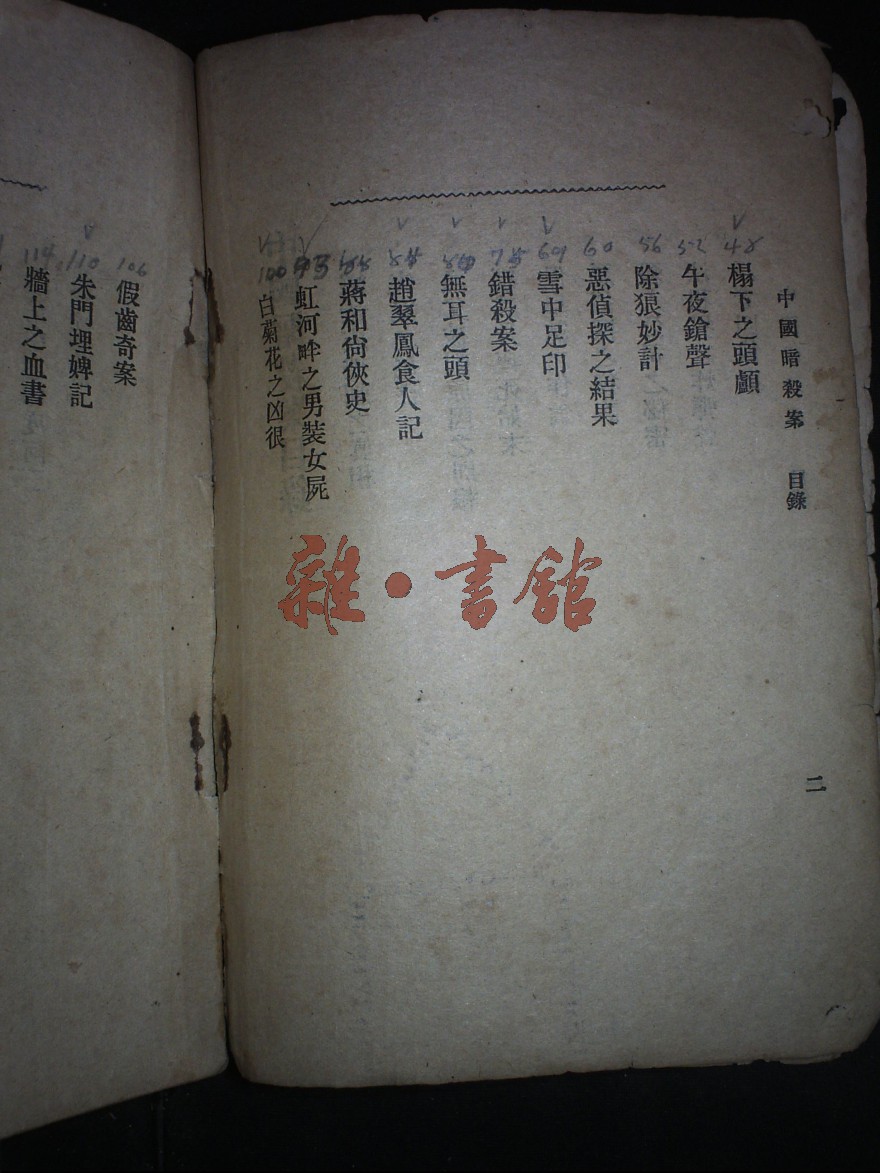 中國暗殺案 目錄
二
48 榻下之頭顱
52 午夜鎗聲
56 除狼妙計
60 惡偵探之結果
69 雪中足印
75 錯殺案
80 無耳之頭
84 趙翠鳳食人記
88 蔣和尙俠史
93 虹河畔之男裝女屍
100 白菊花之凶很
106 假齒奇案
110 朱門埋婢記
114 牆上之血書
雜·書館